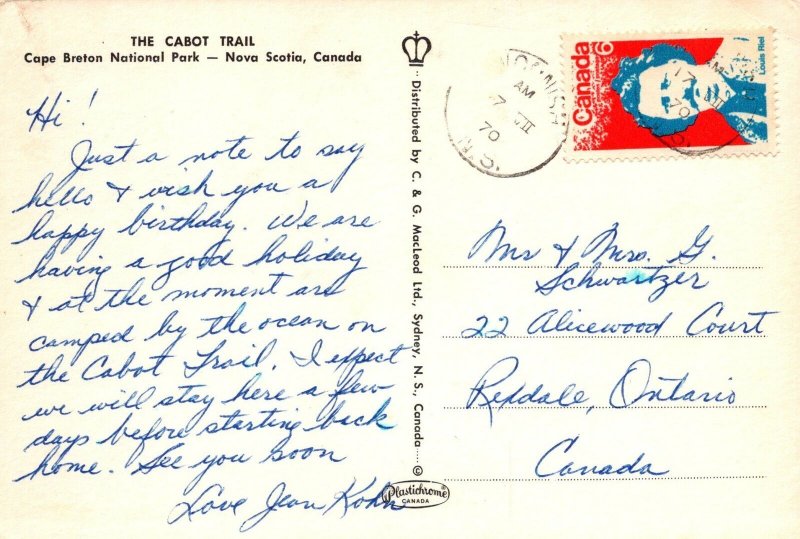 THE CABOT TRAIL
Cape Breton National Park — Nova Scotia, Canada
Hi!
Just a note to say
hello & wish you a
happy birthday. We are
having a good holiday
& at the moment are
camped by the ocean on
the Cabot Trail. I expect
we will stay here a few
days before starting back
home. See you soon
Love Jean Kohn
Distributed by C. & G. MacLeod Ltd., Sydney, N. S., Canada
©
Plastichrome
CANADA
AM
7 VII
70
Canada
6
Louis Riel
17
AM
VII
70
Mr & Mrs. G.
Schwartzer
22 Alicewood Court
Rexdale, Ontario
Canada